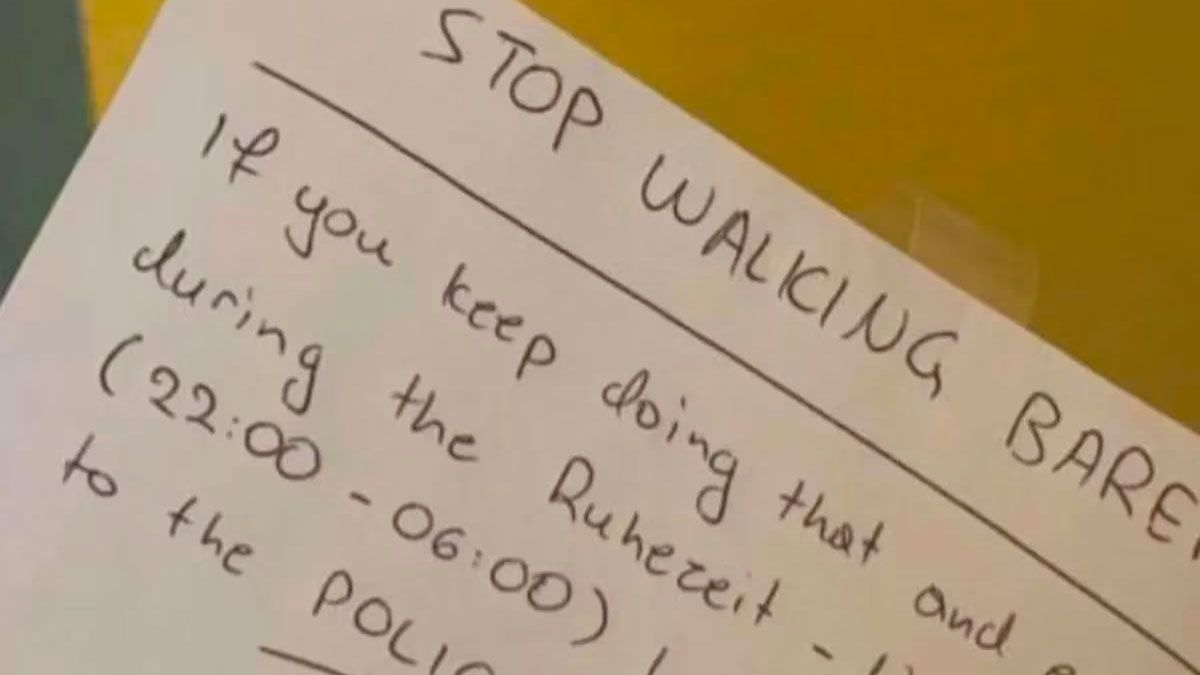 STOP WALKING
If you keep doing that and
during the Ruhezeit -
(22:00 - 06:00)
to the